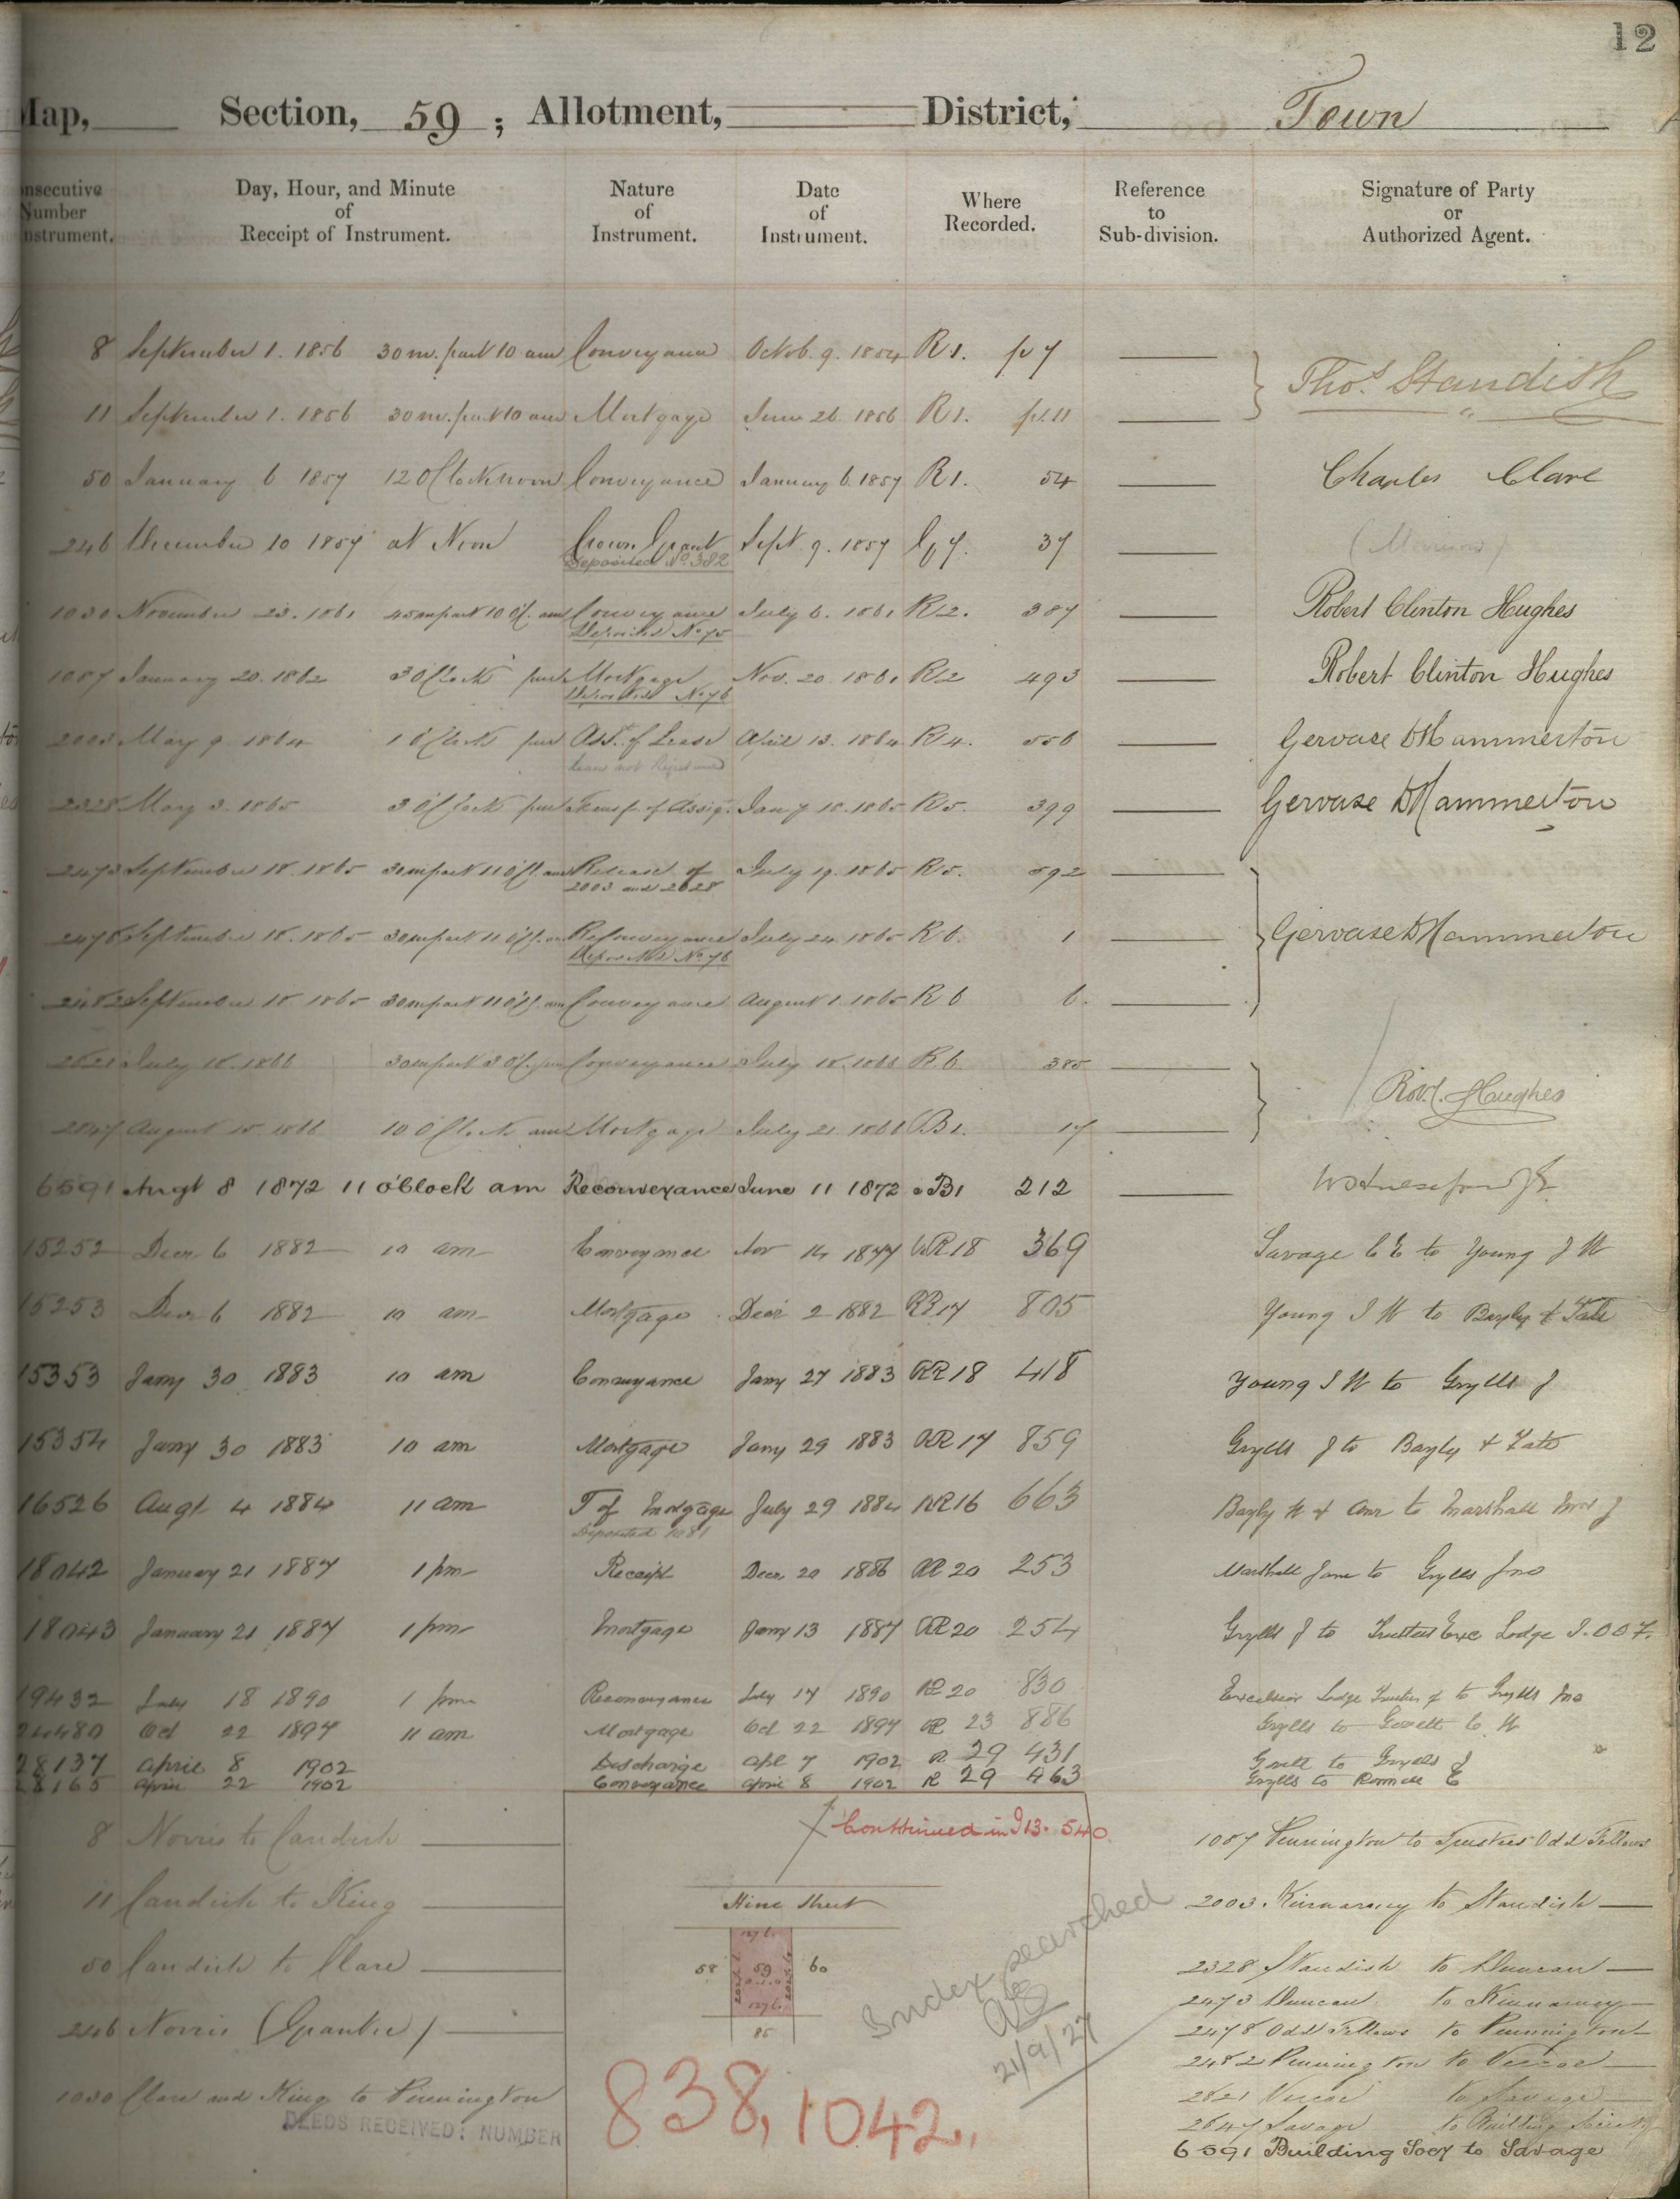 12
Map, Section, 59 ; Allotment, District, Town
Consecutive Number Instrument. Day, Hour, and Minute of Receipt of Instrument. Nature of Instrument. Date of Instrument. Where Recorded. Reference to Sub-division. Signature of Party or Authorized Agent.
8 September 1. 1856 30 m. past 10 am Conveyance Octob. 9. 1854 R 1. fo 7 Thos. Standish
11 September 1. 1856 30 m. past 10 am Mortgage June 26. 1856 R 1. fo. 11
50 January 6 1857 12 O'Clock noon Conveyance January 6. 1857 R 1. 54 Charles Clare
246 December 10 1857 at Noon Crown Grant Sept. 9. 1857 37
Deposited No. 382
1030 November 23. 1861 45 m past 10 O'C. am Conveyance July 6. 1861 R 2. 387 Robert Clinton Hughes
Deposited No 75
1087 January 20. 1862 3 O'Clock pm Mortgage Nov. 20. 1861 R 2 493 Robert Clinton Hughes
Deposited No 76
2003 May 9. 1864 1 O'Clock pm Asst. of Lease April 13. 1864 R 4. 556 Gervase D Hammerton
Lease not Registered
2328 May 3. 1865 3 O'Clock pm Transf. of Assig. Jany 18. 1865 R 5. 399 Gervase D Hammerton
2473 September 18. 1865 30 m past 11 O'Cl. am Release of July 19. 1865 R 5. 592
2003 and 2328
2478 September 18. 1865 30 m past 11 O'Cl. am Reconveyance July 24. 1865 R 6. 1 Gervase D Hammerton
Deposited No. 76
2482 September 18. 1865 30 m past 11 O'Cl. am Conveyance August 1. 1865 R 6 6.
2821 July 18. 1866 30 m past 3 O'C. pm Conveyance July 18. 1866 R 6. 385 Hughes
2847 August 15. 1866 10 O'Clock am Mortgage July 21. 1866 B 1. 17
6591 Augt 8 1872 11 o'Clock am Reconveyance June 11 1872 B1 212
15252 Decr 6 1882 10 am Conveyance Nov 14 1877 RR 18 369 Savage C E to Young J W
15253 Decr 6 1882 10 am Mortgage Decr 2 1882 RR 17 805 Young J W to Bayly & Tate
15353 Jany 30 1883 10 am Conveyance Jany 27 1883 RR 18 418 Young J W to Grylls J
15354 Jany 30 1883 10 am Mortgage Jany 29 1883 RR 17 859 Grylls J to Bayly & Tate
16526 Augt 4 1884 11 am T of Mortgage July 29 1884 RR 16 663 Bayly W & anr to Marshall Mrs J
Deposited 1081
18042 January 21 1887 1 pm Receipt Decr 20 1886 RR 20 253 Marshall Jane to Grylls Jno
18043 January 21 1887 1 pm Mortgage Jany 13 1887 RR 20 254 Grylls J to Trustees Exc Lodge I.O.O.F.
19432 July 18 1890 1 pm Reconveyance July 17 1890 R 20 830 Excelsior Lodge Trustees of to Grylls Jno
24480 Oct 22 1897 11 am Mortgage Oct 22 1897 R 23 886 Grylls to Govett C. W
28137 April 8 1902 Discharge Apl 7 1902 R 29 431 Govett to Grylls J
28165 April 22 1902 Conveyance April 8 1902 R 29 463 Grylls to
Continued in I 13. 540
8 Norris to Candish
11 Candish to King
50 Candish to Clare
246 Norris (Grantee)
1030 Clare and King to Pennington
DEEDS RECEIVED: NUMBER
Hine Street
127 6.
58 59 60
127 6.
85
Index searched
21/9/27
838, 1042,
1087 Pennington to Trustees Odd Fellows
2003 Kinnarney to Standish
2328 Standish to Duncan
2473 Duncan to Kinnarney
2478 Odd Fellows to Pennington
2482 Pennington to Veccoe
2821 Veccoe to Savage
2847 Savage to Building Society
6591 Building Socy to Savage